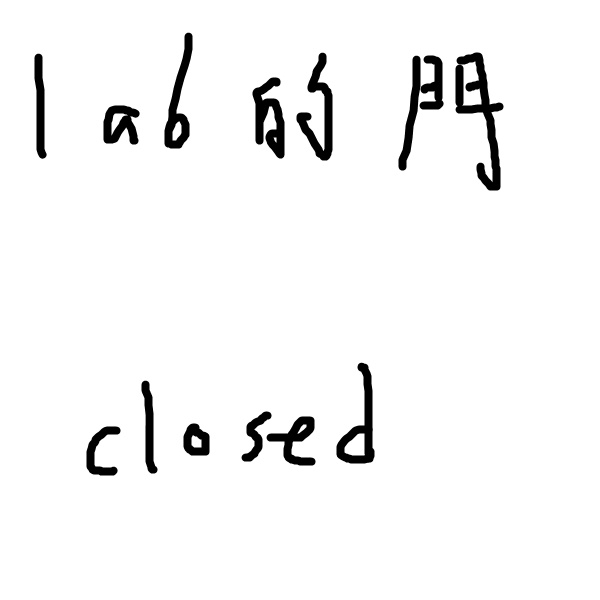 lab的門
closed